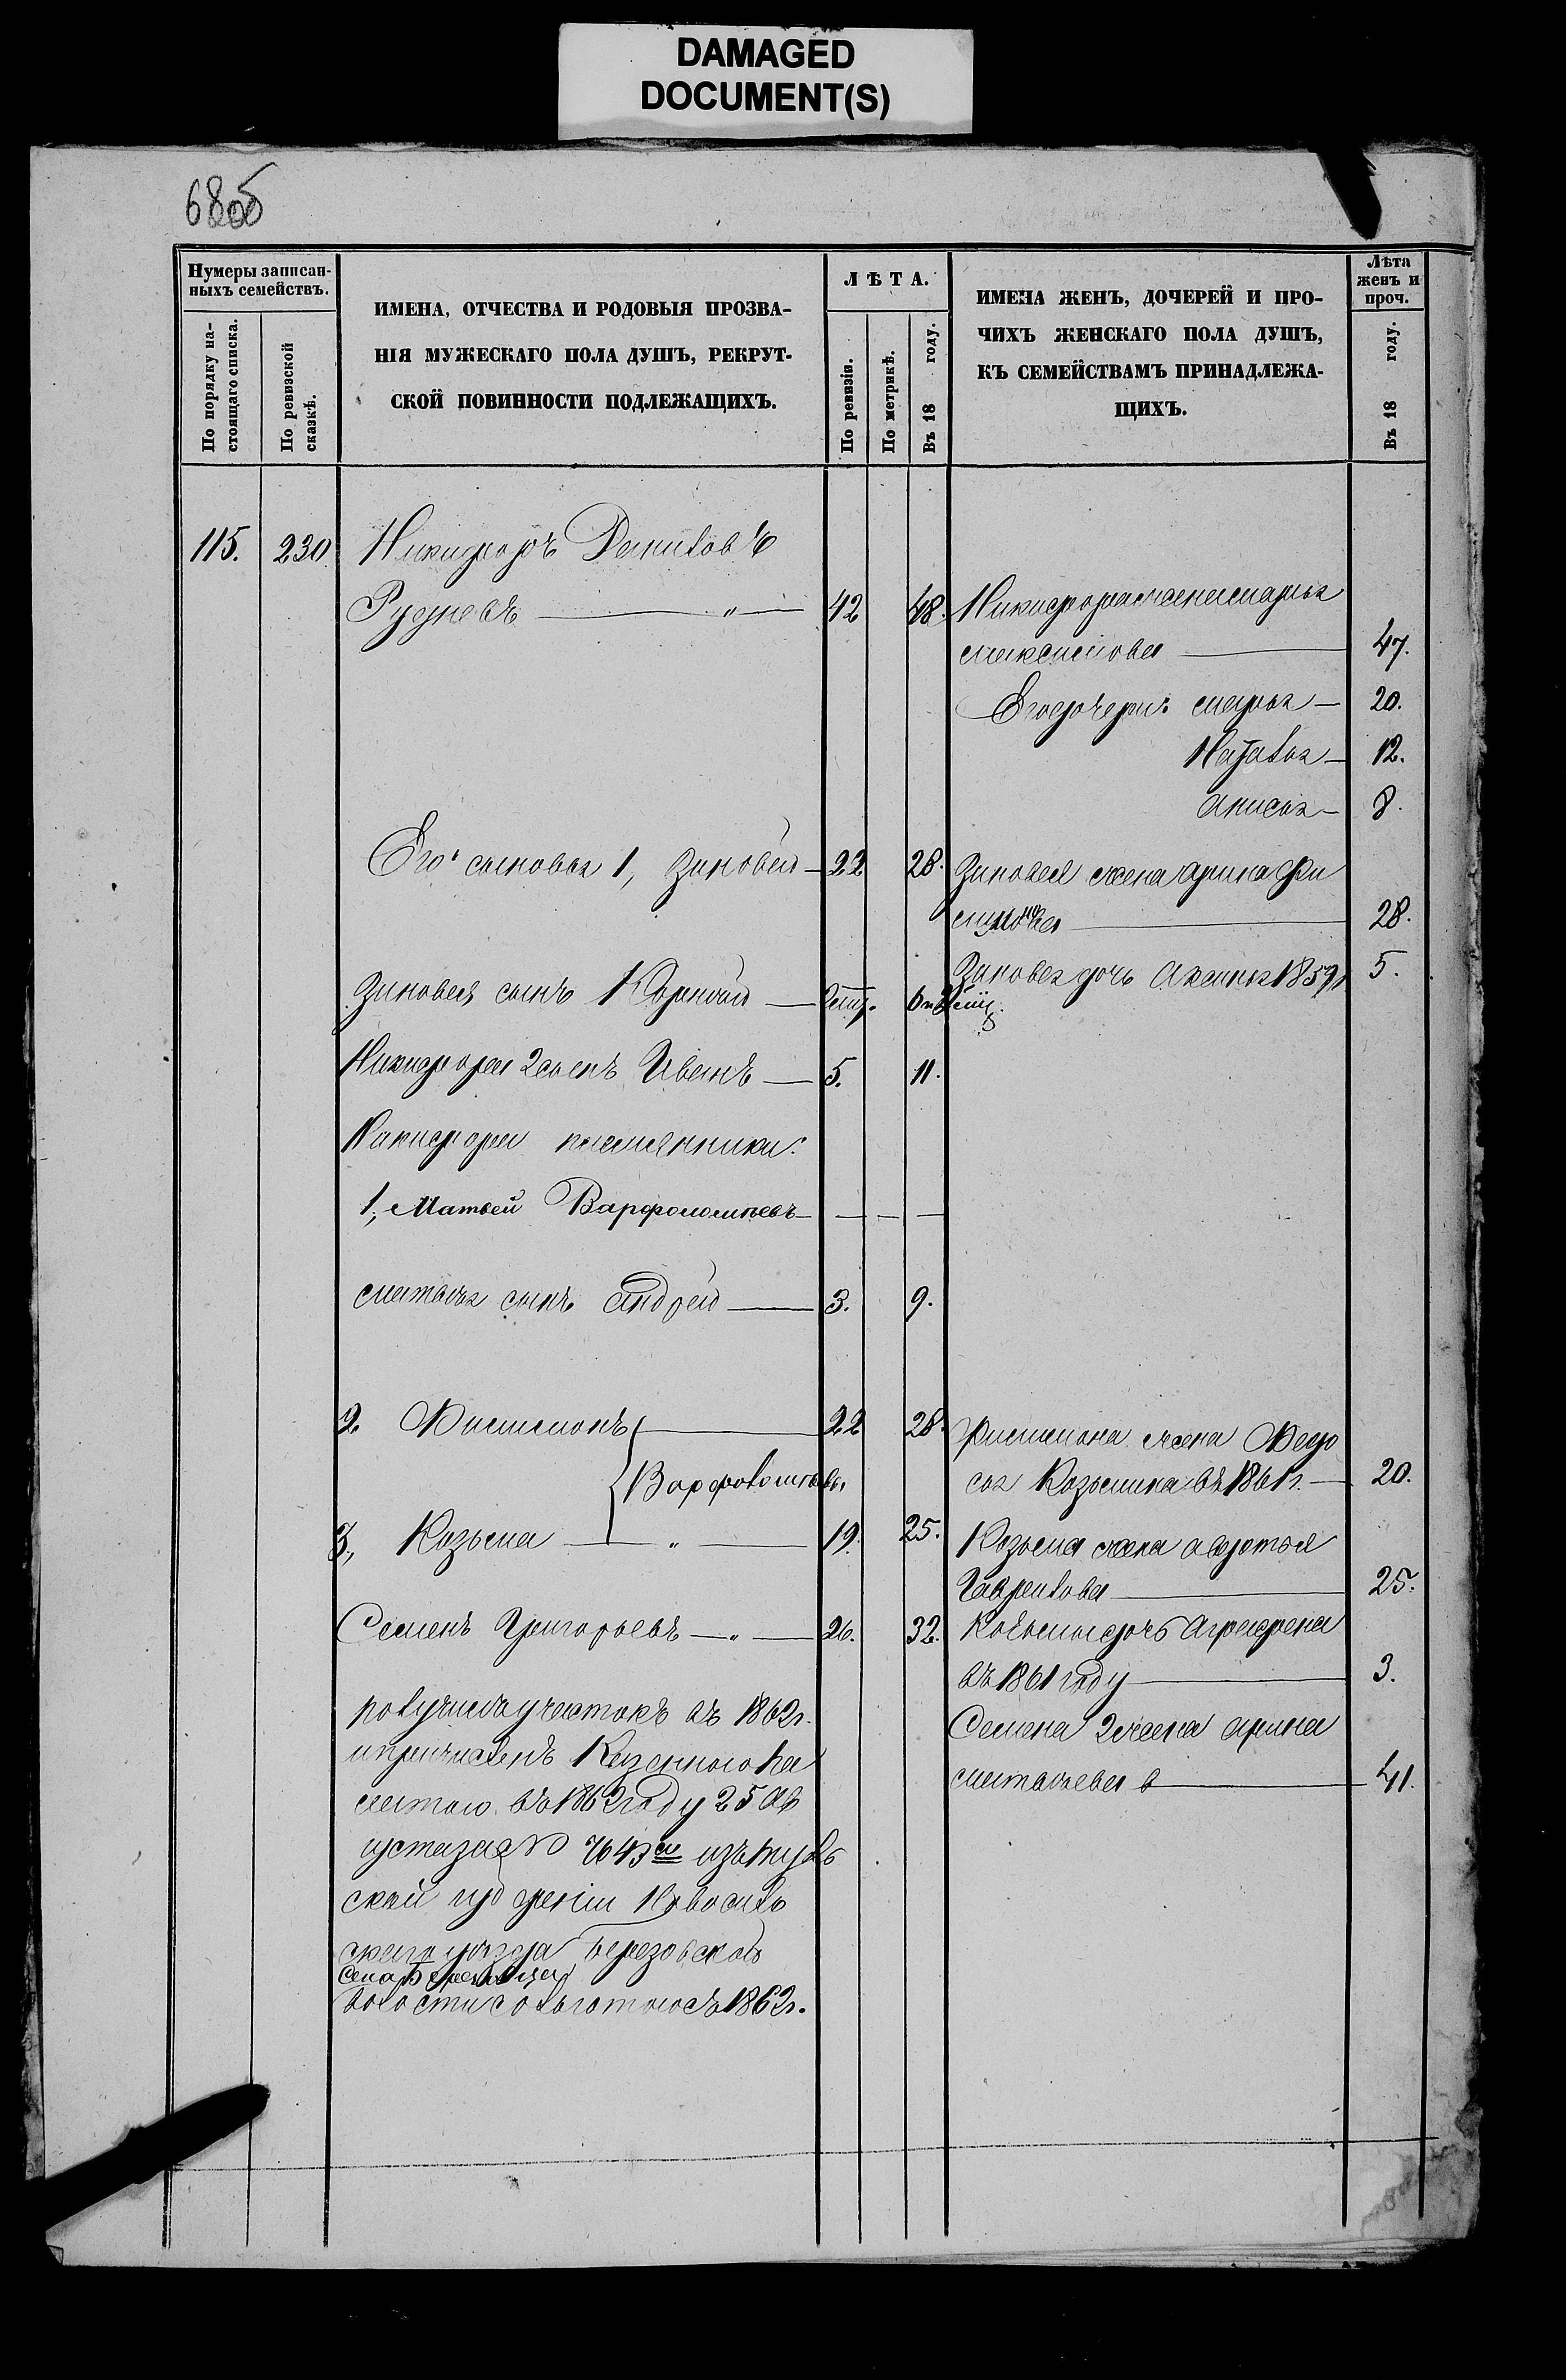 DAMAGED
DOCUMENT(S)
68об
Нумеры записан-
ныхъ семействъ.
По порядку на-
стоящаго списка.
По ревизской
сказкѣ.
ИМЕНА, ОТЧЕСТВА И РОДОВЫЯ ПРОЗВА-
НІЯ МУЖЕСКАГО ПОЛА ДУШЪ, РЕКРУТ-
СКОЙ ПОВИННОСТИ ПОДЛЕЖАЩИХЪ.
ЛѢТА.
По ревизіи.
По метрикѣ.
Въ 18 году.
ИМЕНА ЖЕНЪ, ДОЧЕРЕЙ И ПРО-
ЧИХЪ ЖЕНСКАГО ПОЛА ДУШЪ,
КЪ СЕМЕЙСТВАМЪ ПРИНАДЛЕЖА-
ЩИХЪ.
Лѣта
женъ и
проч.
Въ 18 году.
115. 230 Никифоръ
Рудневъ — " — 42 48. Никифора жена марья
максимова — 47.
Его дочери: марья — 20.
Наталья — 12.
Анисья — 8.
Его сыновья 1, Зиновей — 22 28. Зиновея жена арина Фи
28.
Зиновея сынъ Корней —
Зиновея дочь Аксинья 1859 5.
Никифора 2 сынъ Иванъ — 5. 11.
Никифора племянники:
1, Матвей Варфоломѣевъ — — — —
матвея сынъ Андрей — 3. 9.
2. Филимонъ — 22 28. Филимона жена Федо
сья Козьмина въ 1861 г. — 20.
Варфоломѣевы
3, Козьма — " — 19. 25. Козьмы жена авдотья
Гаврилова — 25.
Семенъ Григорьевъ — " — 26. 32. Козьмы дочь Аграфена
въ 1861 году — 3.
получилъ участокъ въ 1862 г.
Семена 2 жена арина
и причисленъ Казенною Па
матвѣева — 41.
латою въ 1862 году 25 Ав
густа за № изъ Туль
ской губерніи Новосиль
скаго уѣзда Березовской
волости съ льготою съ 1862 г.